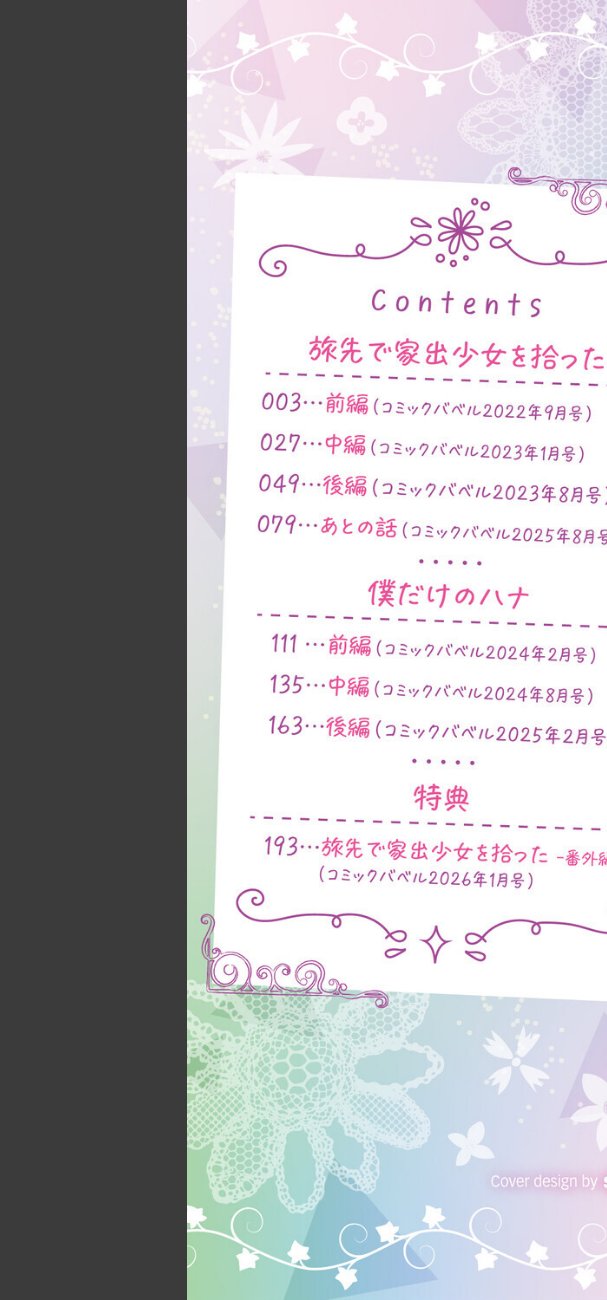 Contents
旅先で家出少女を拾った
003…前編(コミックバベル2022年9月号)
027…中編(コミックバベル2023年1月号)
049…後編(コミックバベル2023年8月号)
079…あとの話(コミックバベル2025年8月号
僕だけのハナ
111…前編(コミックバベル2024年2月号)
135…中編(コミックバベル2024年8月号)
163…後編(コミックバベル2025年2月号
特典
193…旅先で家出少女を拾った -番外編
(コミックバベル2026年1月号)
Cover design by